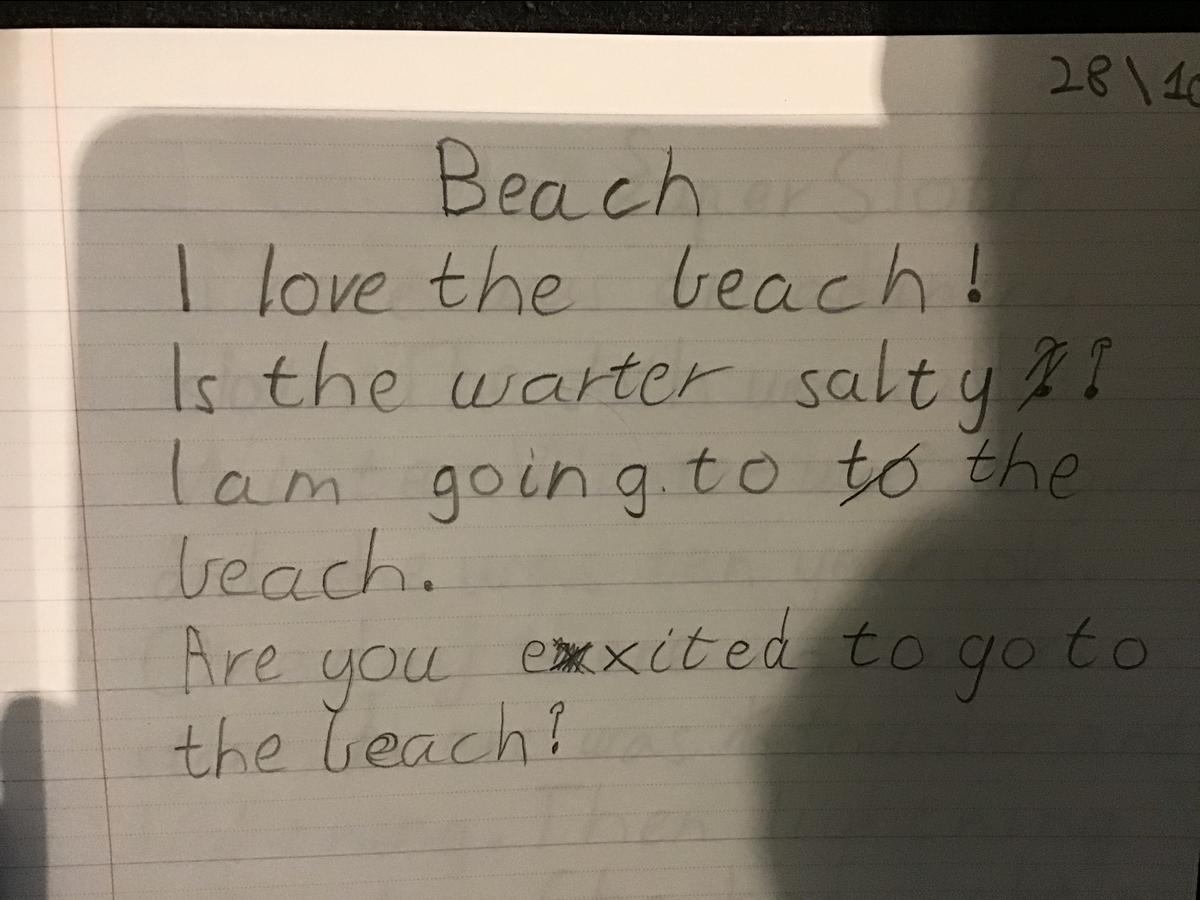 28\10
Beach
I love the beach!
Is the warter salty?
I am going. to to the
beach.
Are you exxited to go to
the beach?